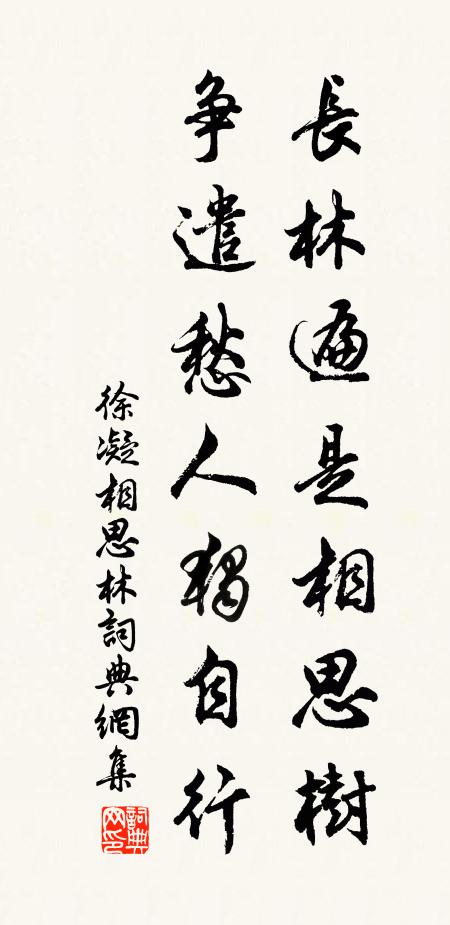 長林遍是相思樹
爭遣愁人獨自行
徐凝相思林詞典網集
詞典
网印